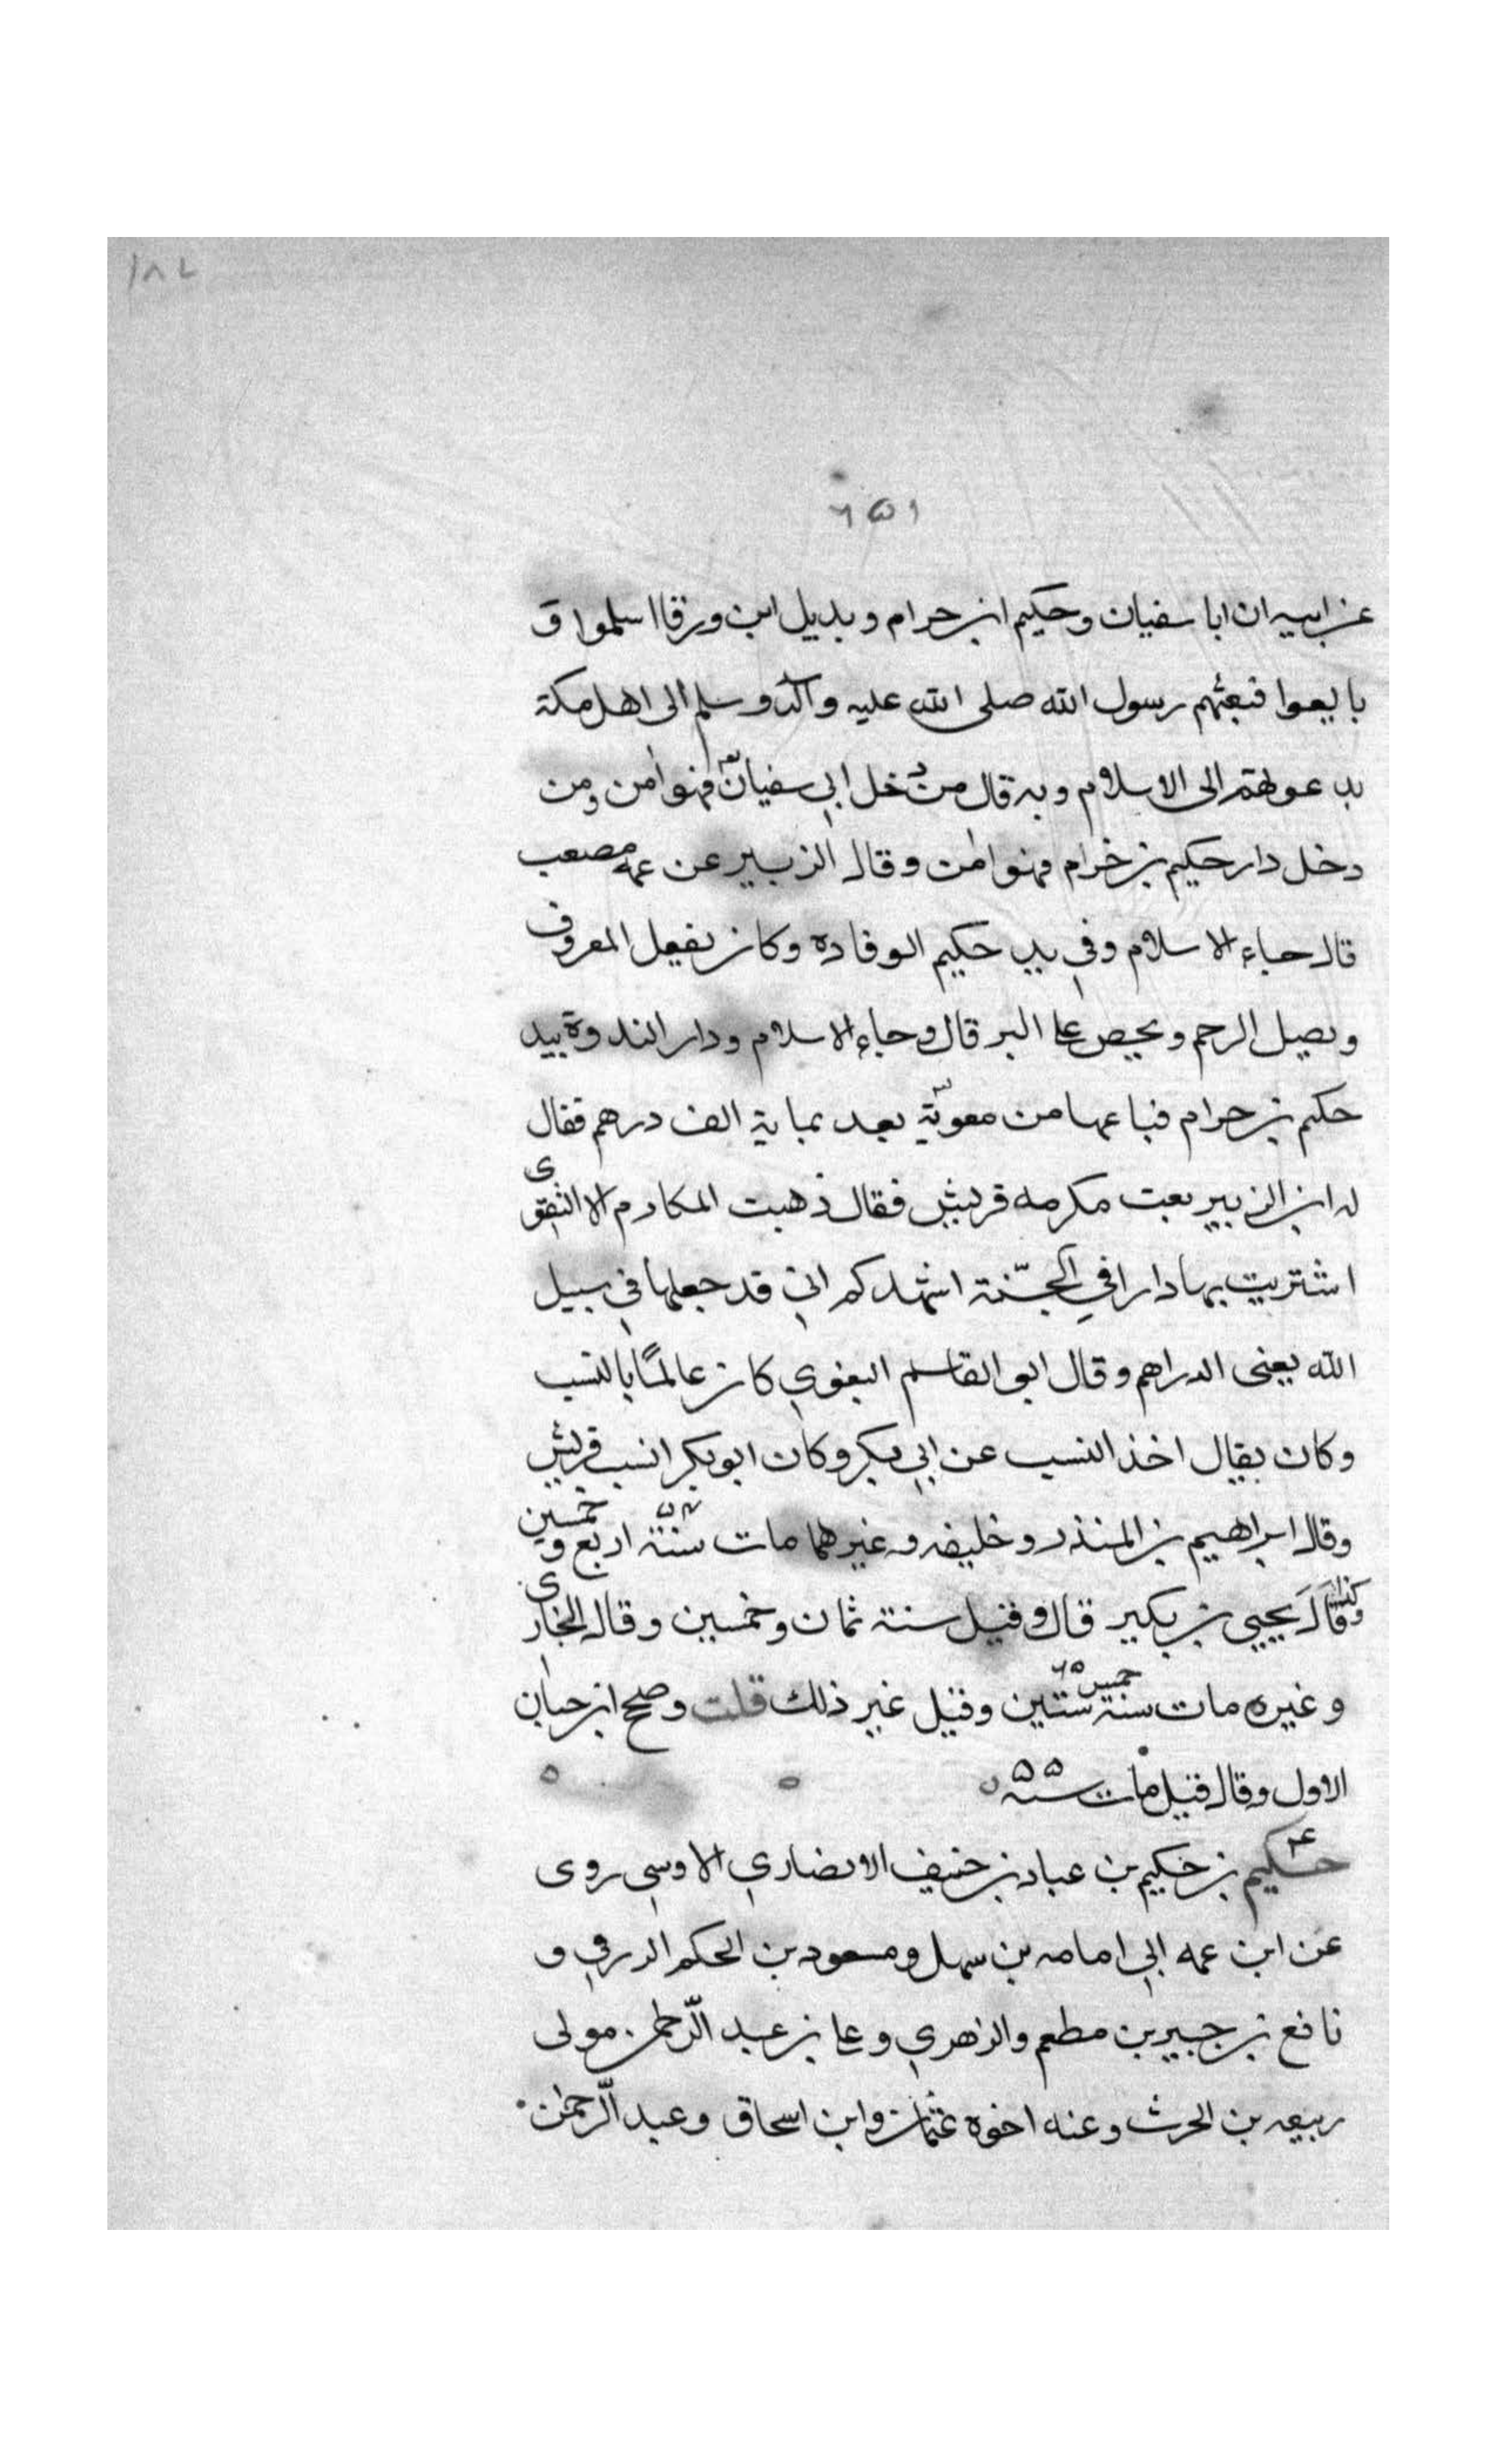 ١٨٢
٦٥١
عن ابيه ان ابا سفيان وحكيم ابن حرام وبديل ابن ورقا اسلموا و
بايعوا فبعثهم رسول الله صلى الله عليه وآله وسلم الى اهل مكة
يدعولهم الى الاسلام وبه قال من دخل ابي سفيان فهوامن ومن
دخل دار حكيم بن خرام فهوامن وقال الزبير عن عمه مصعب
قال جاء الاسلام وفي يد حكيم الوفاده وكان يفعل المعروف
ويصل الرحم ويحص على البر قال وجاء الاسلام ودار الندوة بيد
حكم بن حرام فباعها من معوية بعد بماية الف درهم فقال
له ابن الزبير بعت مكرمه قريش فقال ذهبت المكارم الا التقوى
اشتريت بها دارا في الجنة اشهدكم اني قد جعلها في سبيل
الله يعنى الدراهم وقال ابو القاسم البغوي كان عالمًا بالنسب
وكان يقال اخذ النسب عن ابي بكر وكان ابوبكر انسب قريش
وقال ابراهيم بن المنذر وخليفه وغيرهما مات سنة اربع وخمسين
وكذا قال يحيى بن بكير قال وقيل سنة ثمان وخمسين وقال البخارى
وغيره مات سنة ستين وقيل غير ذلك قلت وصحح ابن حبان
الاول وقال قيل مات سنه ٥٥
حكيم بن حكيم بن عباد بن حنيف الانصاري الاوسي روى
عن ابن عمه ابي امامه بن سهل ومسعود بن الحكم الدرقي و
نافع بن جبير بن مطعم والزهري وعلى بن عبد الرحمن مولى
ربيعه بن الحرث وعنه اخوه عثمان وابن اسحاق وعبد الرحمن